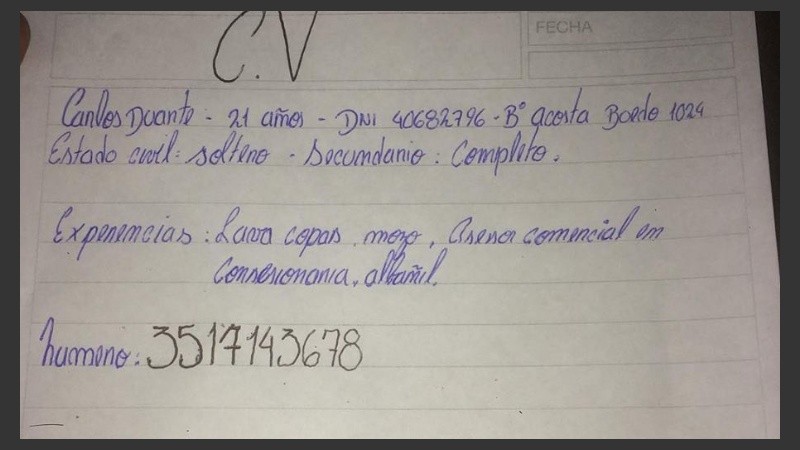 FECHA
C.V
Carlos Duarte - 21 años - DNI 40682796 - Bº acosta Boedo 1024
Estado civil: soltero - Secundario: Completo.
Experiencias: Lava copas, mozo, asesor comercial en
Consesionaria, albañil.
numero: 3517143678